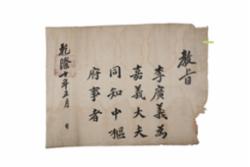 敎旨
李廣義爲
嘉義大夫
同知中樞
府事者
乾隆十年五月 日